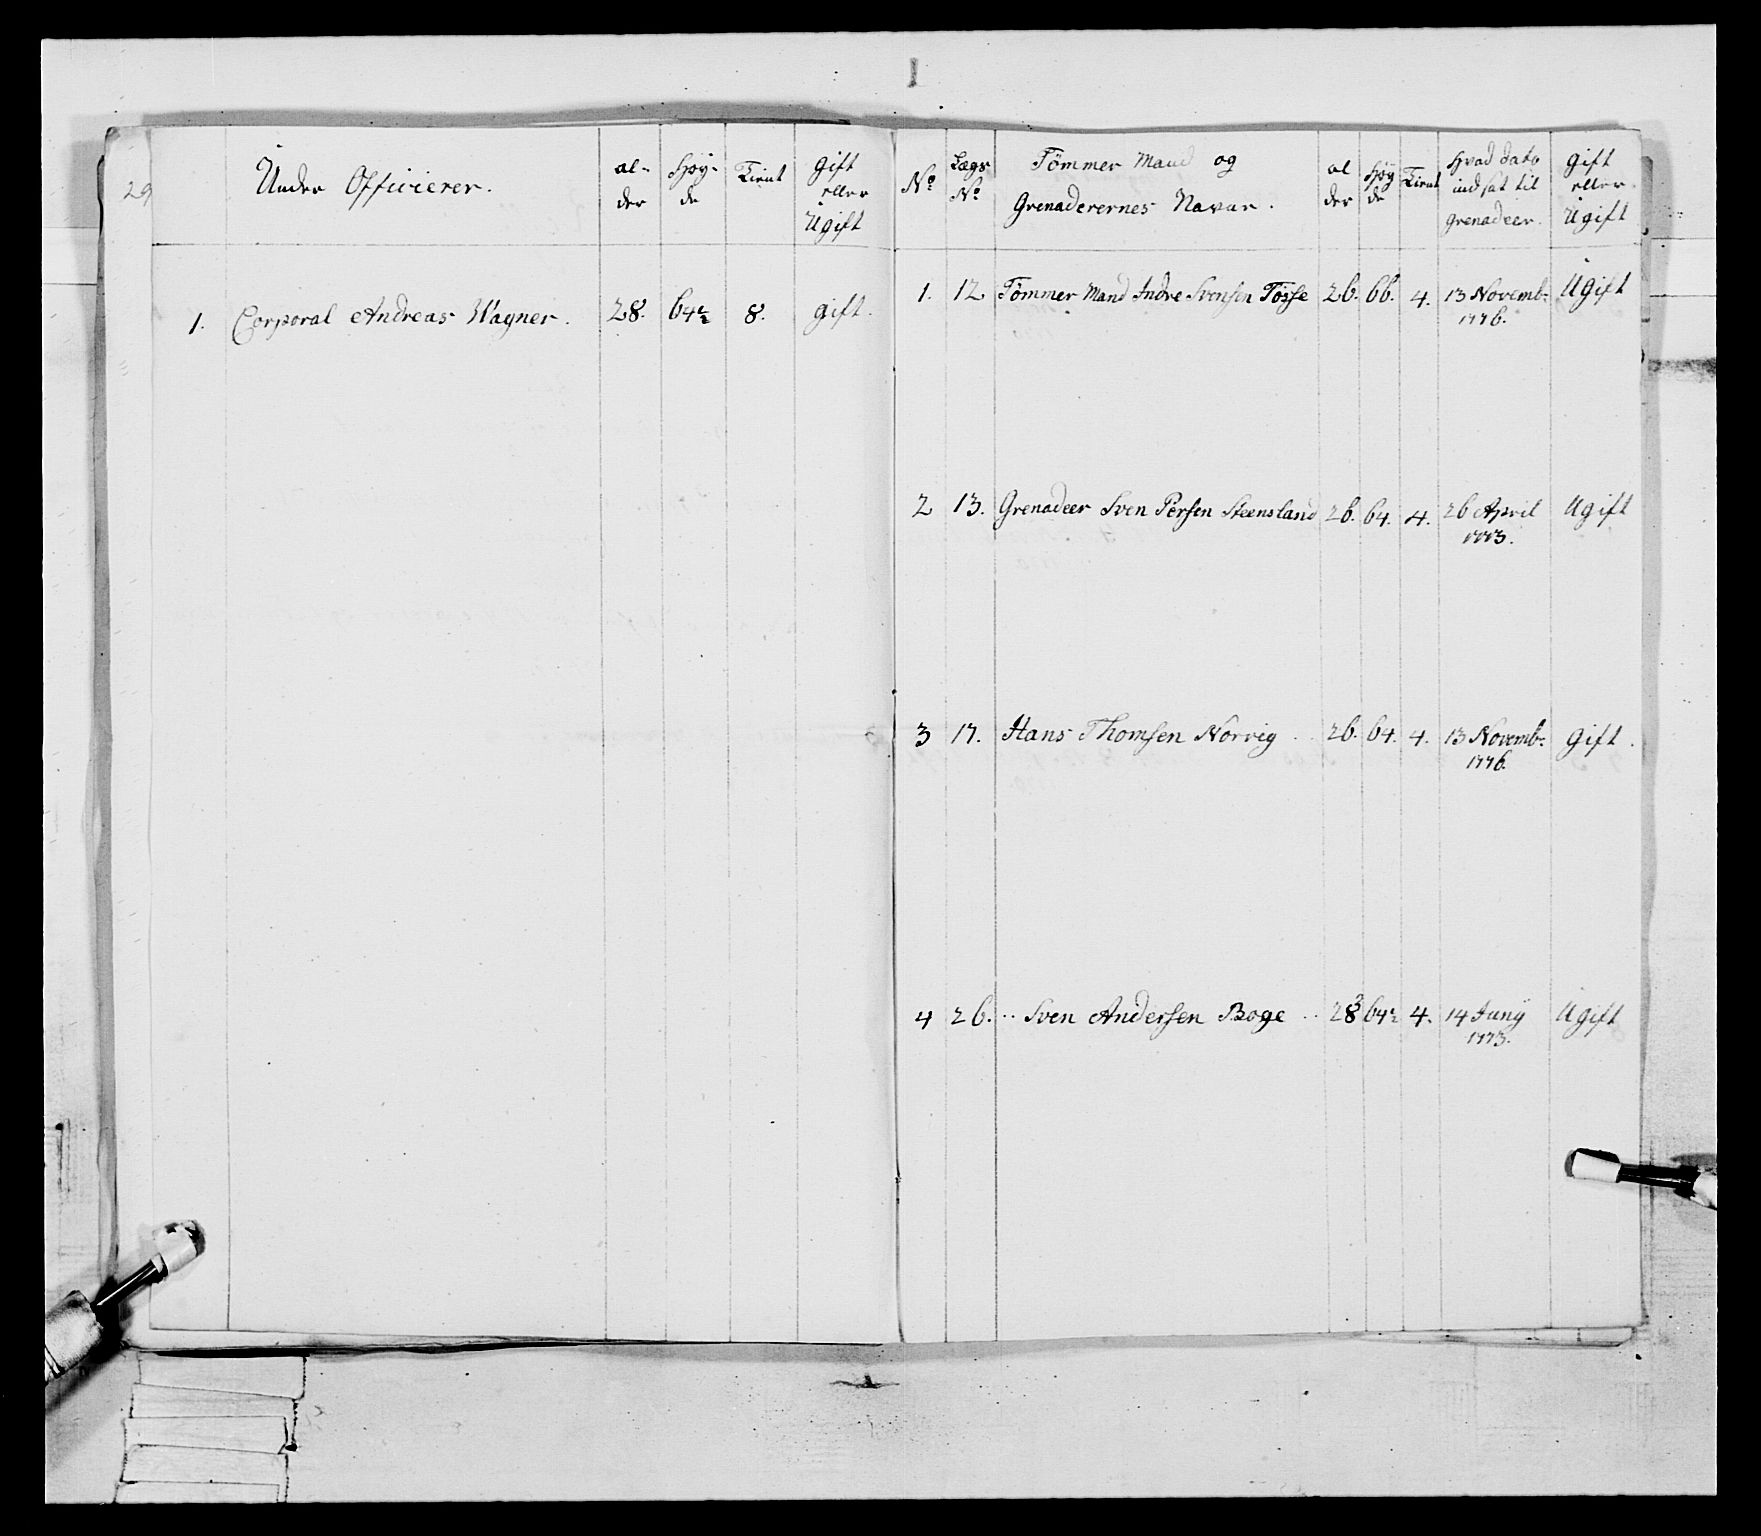 29
Under Officierer.
al-
der
Høy-
de
Tient
gift
eller
Ugift
1. Corporal Andreas Wagner. 28. 64½ 8. gift.
No
Lægs
No
Tömmer Mand og
Grenaderernes Navar.
al
der
Høy
de
Tient
Hvad dato
indsat til
grenadeer.
gift
eller
Ugift
1. 12 Tömmer Mand Endre Svensen Tösse 26. 66. 4. 13 Novemb: Ugift
1776.
2 13. Grenadeer Sven Persen Steensland 26. 64. 4. 26 April Ugift
1773.
3 17. Hans Thomsen Norvig 26. 64. 4. 13 Novemb: gift.
1776.
4 26. Sven Andersen Boge 28 64½ 4. 14 Juny Ugift
1773.